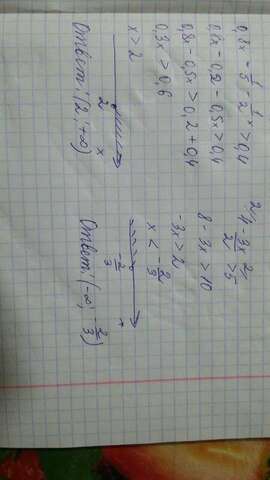 0,8x - 1/5 - 1/2 x > 0,4
0,8x - 0,2 - 0,5x > 0,4
0,8x - 0,5x > 0,2 + 0,4
0,3x > 0,6
x > 2
2 x
Ответ: (2; +∞)
2/ 4 - 3x/2 > 2/ 5
8 - 3x > 10
-3x > 2
x < -2/3
-2/3 x
Ответ: (-∞; -2/3)